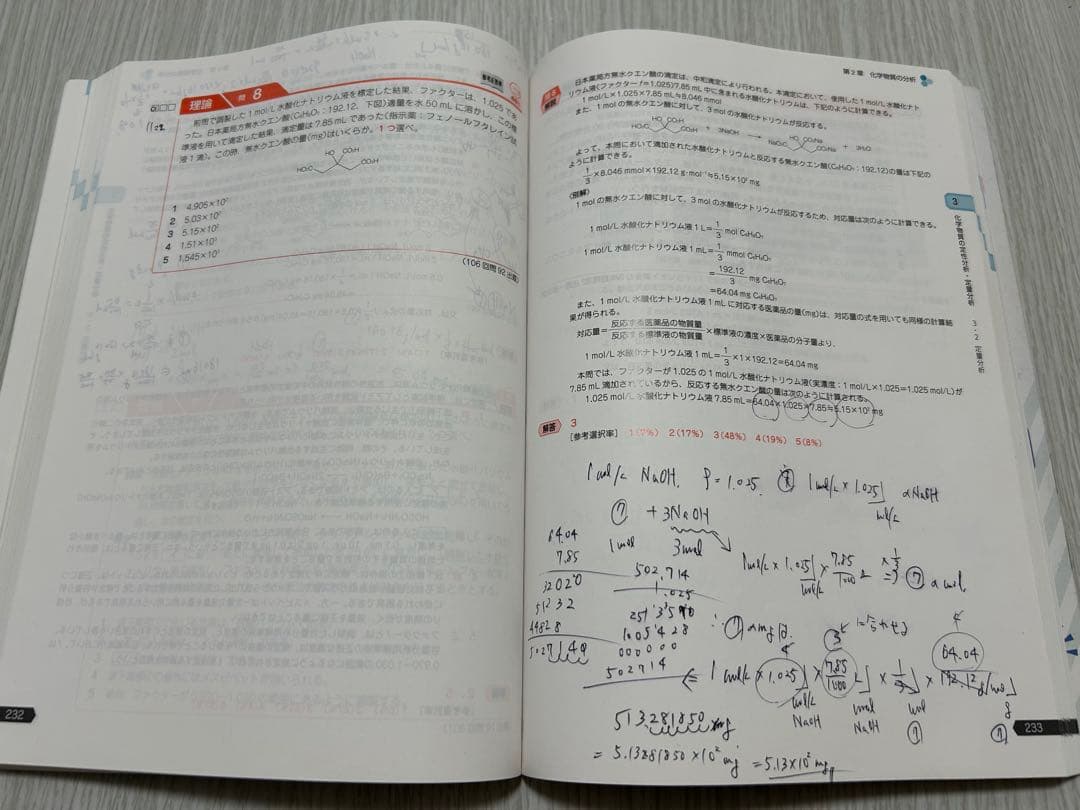 理論 問 8
前問で調製した1 mol/L 水酸化ナトリウム液を標定した結果、ファクターは、1.025であ
った。日本薬局方無水クエン酸(C₆H₈O₇:192.12、下図)適量を水 50 mL に溶かし、この標
準液を用いて滴定した結果、滴定量は 7.85 mL であった(指示薬:フェノールフタレイン試
液1滴)。この時、無水クエン酸の量(mg)はいくらか。1つ選べ。
HO CO₂H
HO₂C CO₂H
1 4.905×10²
2 5.03×10²
3 5.15×10²
4 1.51×10³
5 1.545×10³
(106 回問 92 出題)
232
第2章 化学物質の分析
問8
解説
日本薬局方無水クエン酸の滴定は、中和滴定により行われる。本滴定において、使用した1 mol/L 水酸化ナト
リウム液(ファクター f=1.025)7.85 mL 中に含まれる水酸化ナトリウムは、下記のように計算できる。
1 mol/L×1.025×7.85 mL≒8.046 mmol
また、1 mol の無水クエン酸に対して、3 mol の水酸化ナトリウムが反応する。
HO CO₂H
HO₂C CO₂H + 3NaOH → NaO₂C HO CO₂Na CO₂Na + 3H₂O
よって、本問において滴加された水酸化ナトリウムと反応する無水クエン酸(C₆H₈O₇:192.12)の量は下記の
ように計算できる。
1/3×8.046 mmol×192.12 g・mol⁻¹≒5.15×10² mg
〈別解〉
1 mol の無水クエン酸に対して、3 mol の水酸化ナトリウムが反応するため、対応量は次のように計算できる。
1 mol/L 水酸化ナトリウム液 1 L=1/3 mol C₆H₈O₇
1 mol/L 水酸化ナトリウム液 1 mL=1/3 mmol C₆H₈O₇
=192.12/3 mg C₆H₈O₇
=64.04 mg C₆H₈O₇
また、1 mol/L 水酸化ナトリウム液 1 mL に対応する医薬品の量(mg)は、対応量の式を用いても同様の計算結
果が得られる。
対応量=反応する医薬品の物質量/反応する標準液の物質量×標準液の濃度×医薬品の分子量より、
1 mol/L 水酸化ナトリウム液 1 mL=1/3×1×192.12=64.04 mg
本問では、ファクターが 1.025 の 1 mol/L 水酸化ナトリウム液(実濃度:1 mol/L×1.025=1.025 mol/L)が
7.85 mL 滴加されているから、反応する無水クエン酸の量は次のように計算される。
1.025 mol/L 水酸化ナトリウム液 7.85 mL=64.04×1.025×7.85≒5.15×10² mg
解答 3
[参考選択率] 1(7%) 2(17%) 3(48%) 4(19%) 5(8%)
3
化学物質の定性分析・定量分析
3・2 定量分析
1 mol/L NaOH. f=1.025.
1 mol/L × 1.025 NaOH
mol/L
+ 3NaOH
1 mol 3 mol
64.04
7.85
32020
51232
44828
5027140
502.714
1.025
1005428
000000
502714
1 mol/L × 1.025 × 7.85/1000 L × 1/3
64.04
1 mol/L × 1.025 × 7.85/1000 L × 1/3 × 192.12 g/mol
mol/L NaOH
mol NaOH
mol
g
513.281850 mg
= 5.13281850 × 10² mg = 5.13×10² mg
233